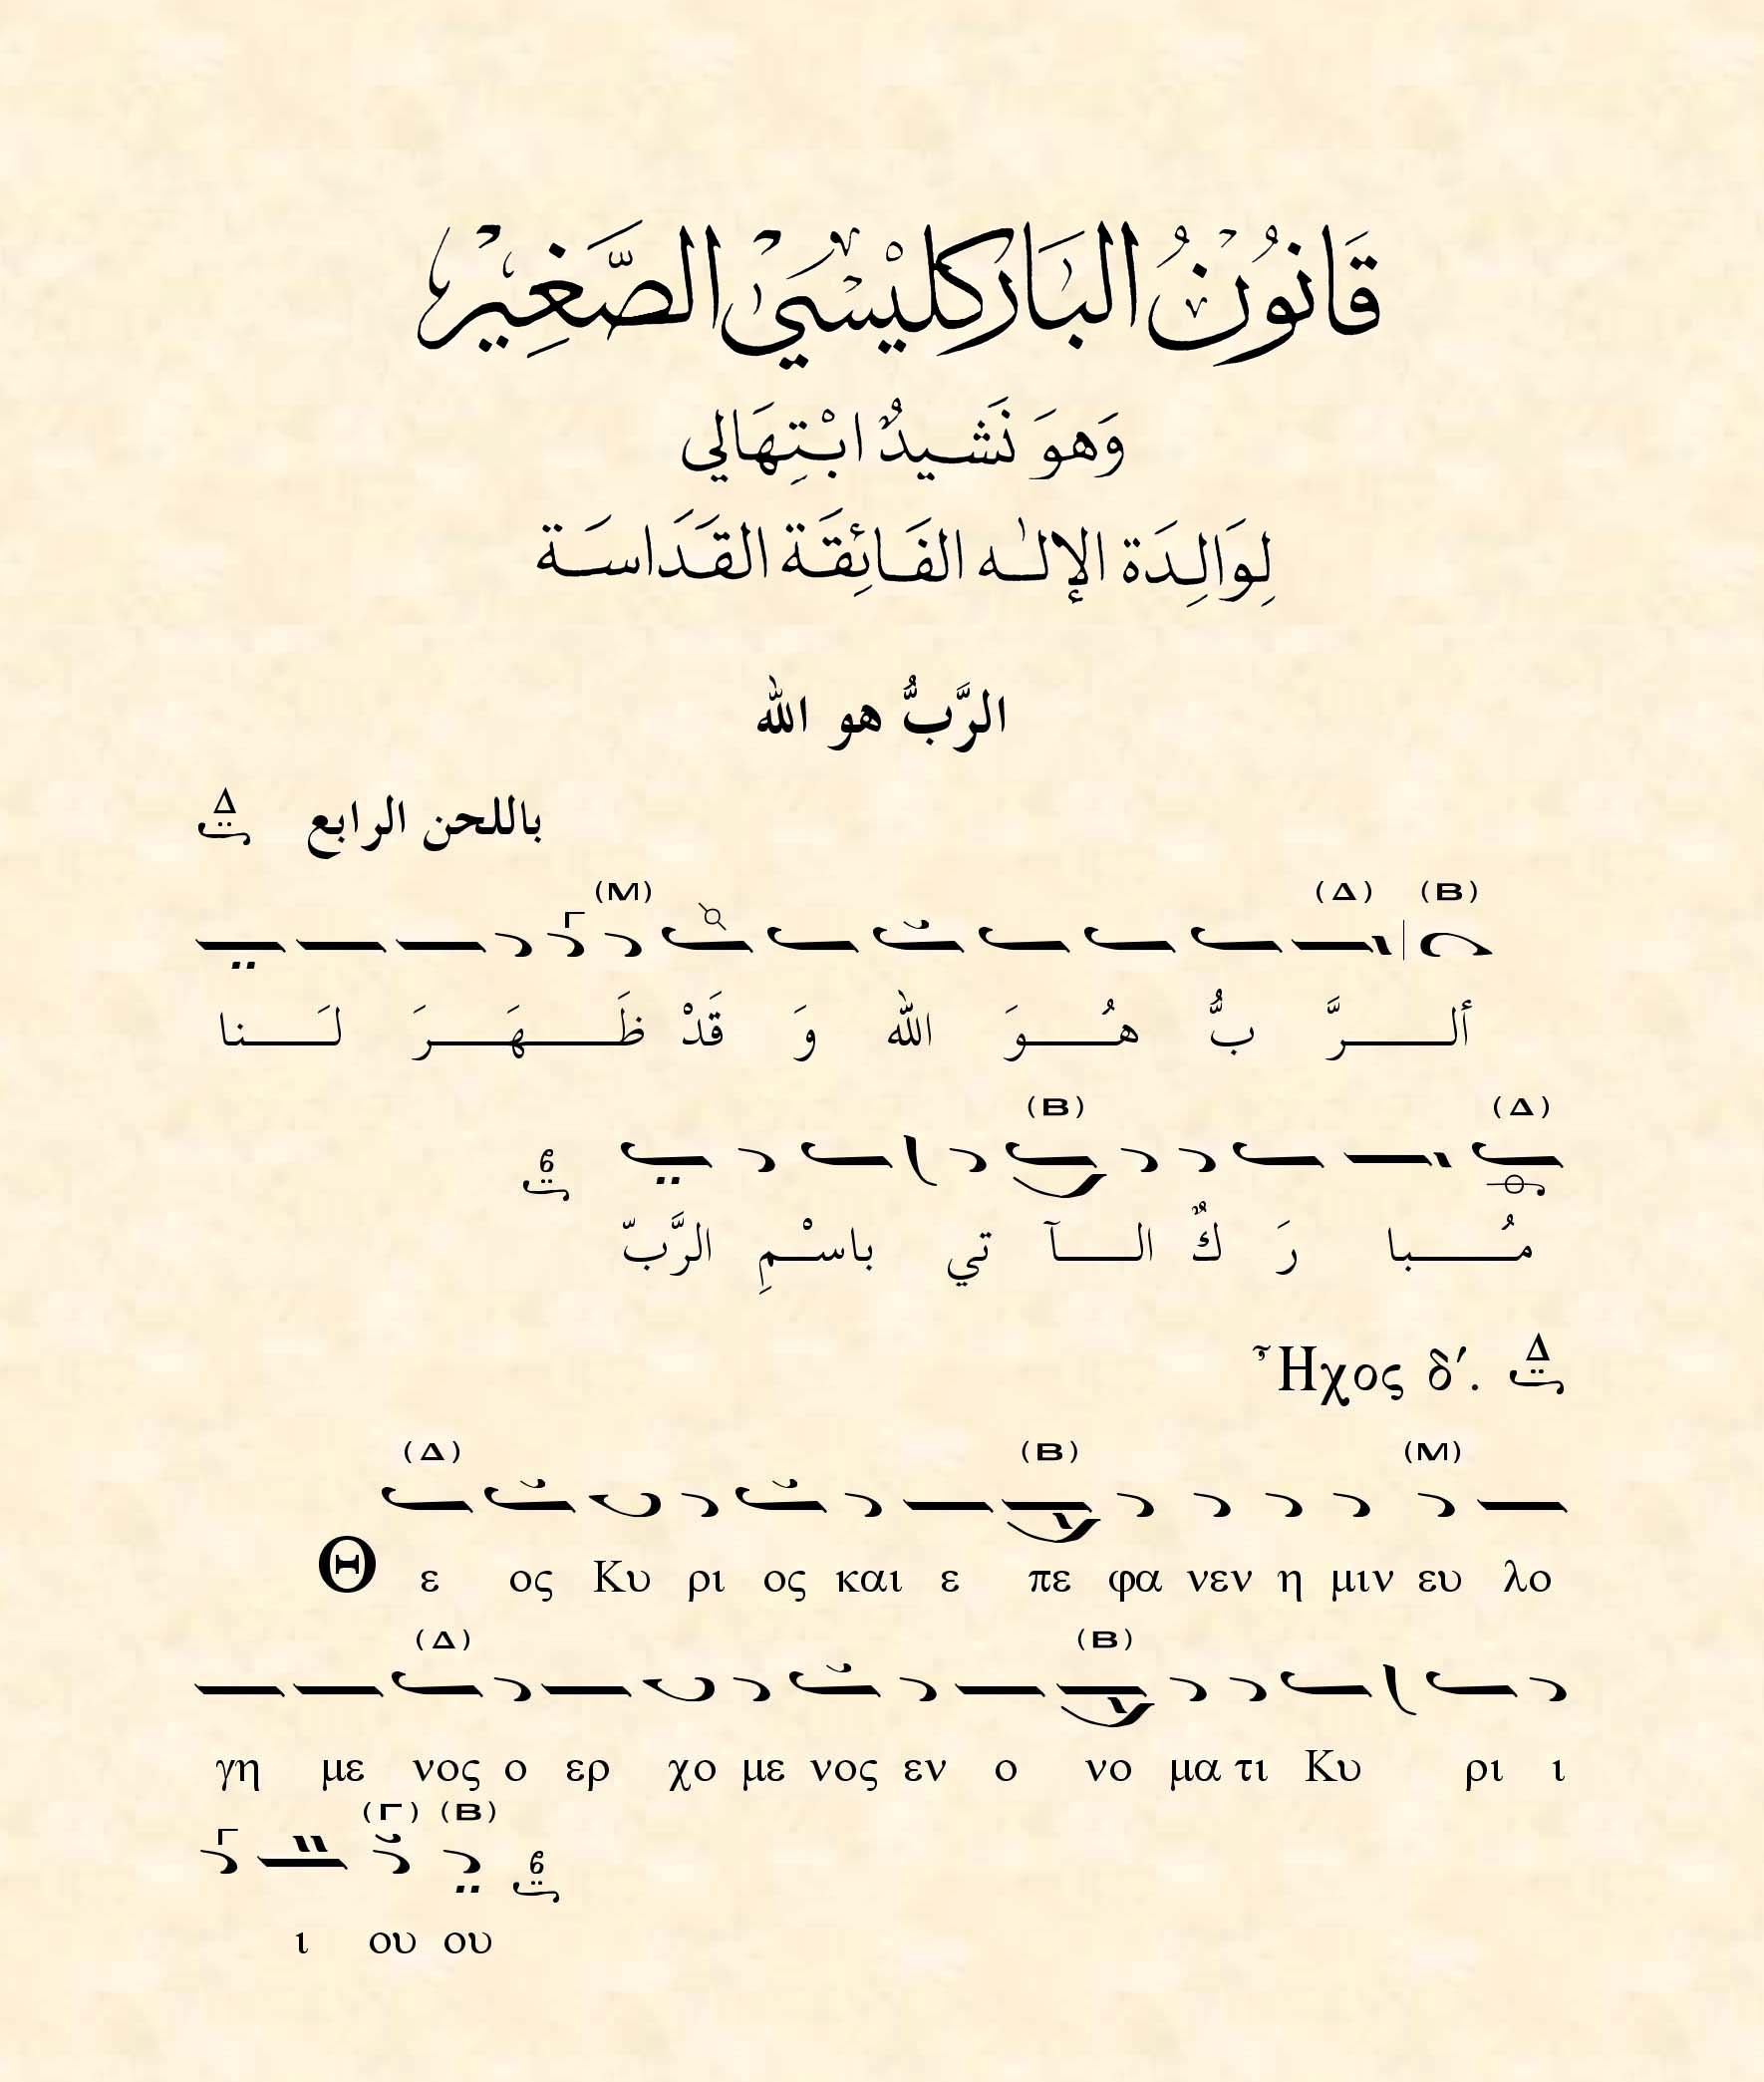 قَانُونُ البَارَكلِيْسِيْ الصَّغِيْرِ
وَهوَ نَشيدٌ ابْتِهَالي
لِوَالِدَة الإلٰه الفَائِقَة القَدَاسَة
الرَّبُّ هو الله
باللحن الرابع Δ
(B) (Δ) (M) Γ
ألـــرَّ بُّ هُـــوَ الله وَ قَدْ ظَـــهَـــرَ لَـــنا
(Δ) (B)
مُـــبا رَ كٌ الـــآ تي باسْـمِ الرَّبّ
Ἦχος δ´. Δ
(Δ) (B) (M)
Θ ε ος Κυ ρι ος και ε πε φα νεν η μιν ευ λο
(Δ) (B)
γη με νος ο ερ χο με νος εν ο νο μα τι Κυ ρι ι
Γ (Γ) (B)
ι ου ου